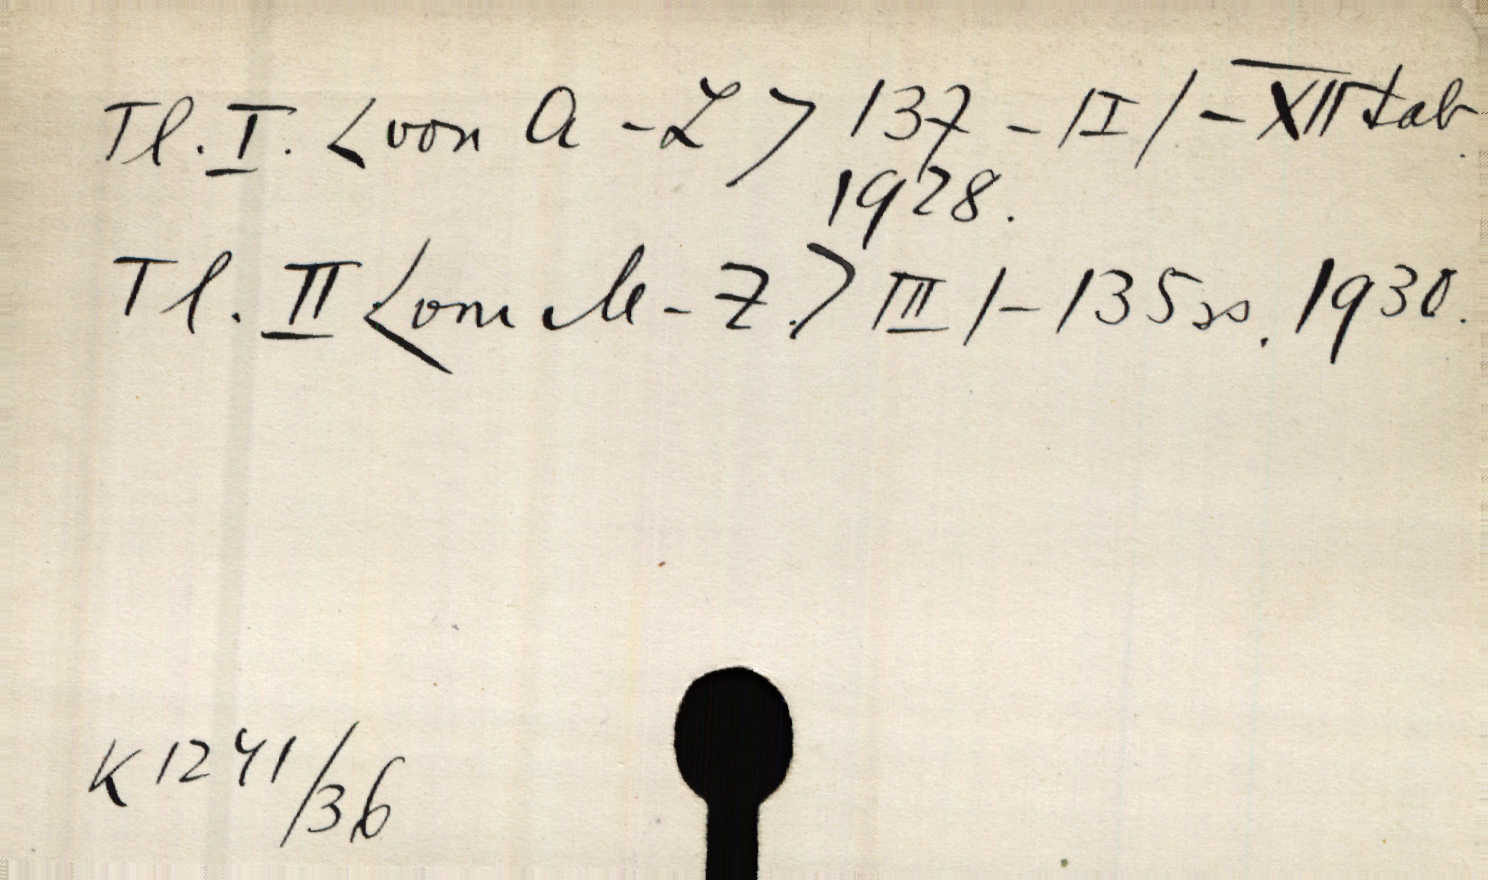 Tl. I. <von A - L> 137 - |I| - XII tab.
1928.
Tl. II <vom M - Z.> III | - 135 ss. 1930.
K 1241/36